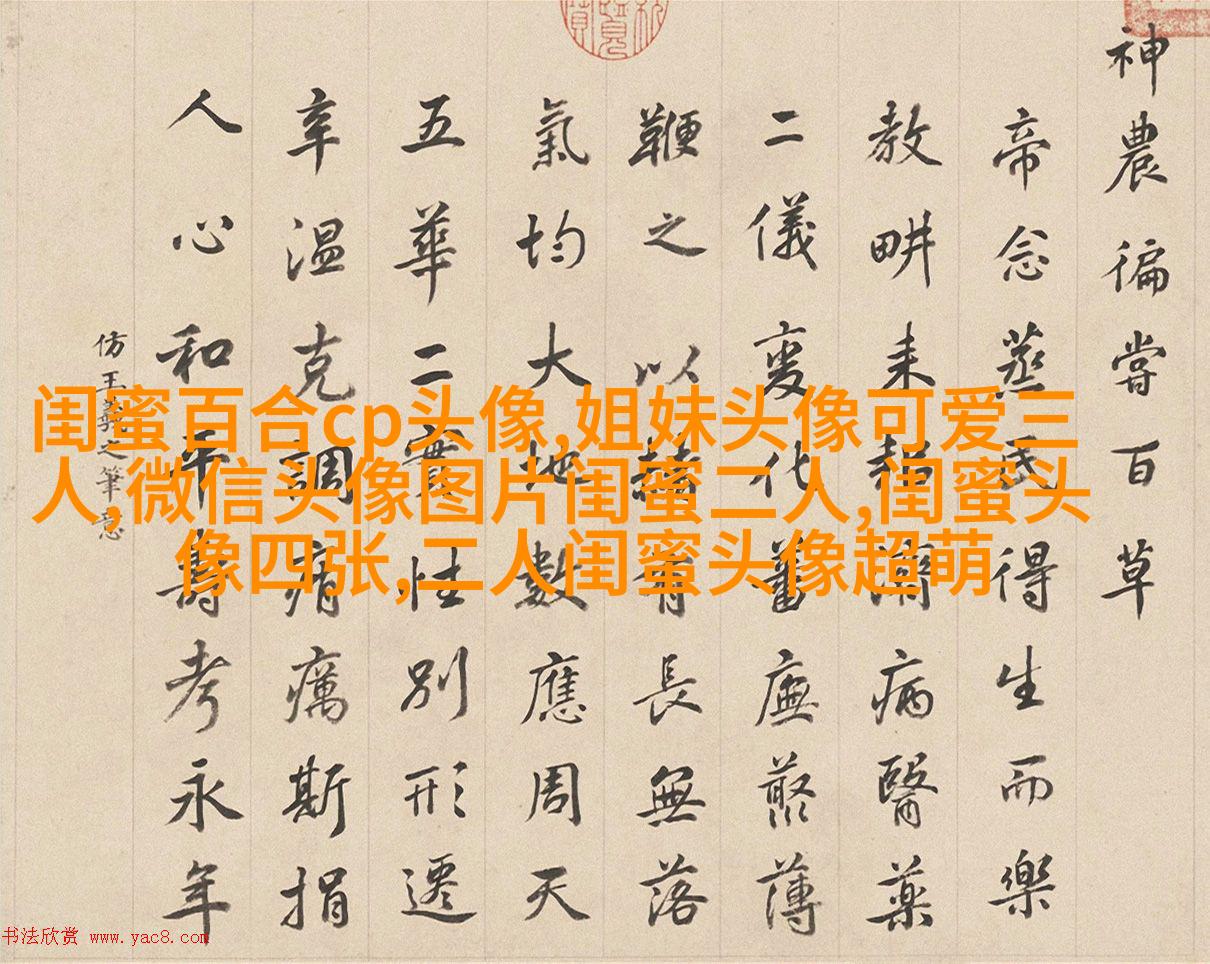 神農徧嘗百草
帝念蒸民得生而樂
教畊耒耨病醫藥
二儀變化蕃廡叢薄
鞭之以長無落
氣均大地數應周天
五華二實性別形遷
辛溫克調痟癘斯捐
人心和平壽考永年
仿王羲之筆意
闺蜜百合cp头像,姐妹头像可爱三
人,微信头像图片闺蜜二人,闺蜜头
像四张,二人闺蜜头像超萌
书法欣赏 www.yac8.com